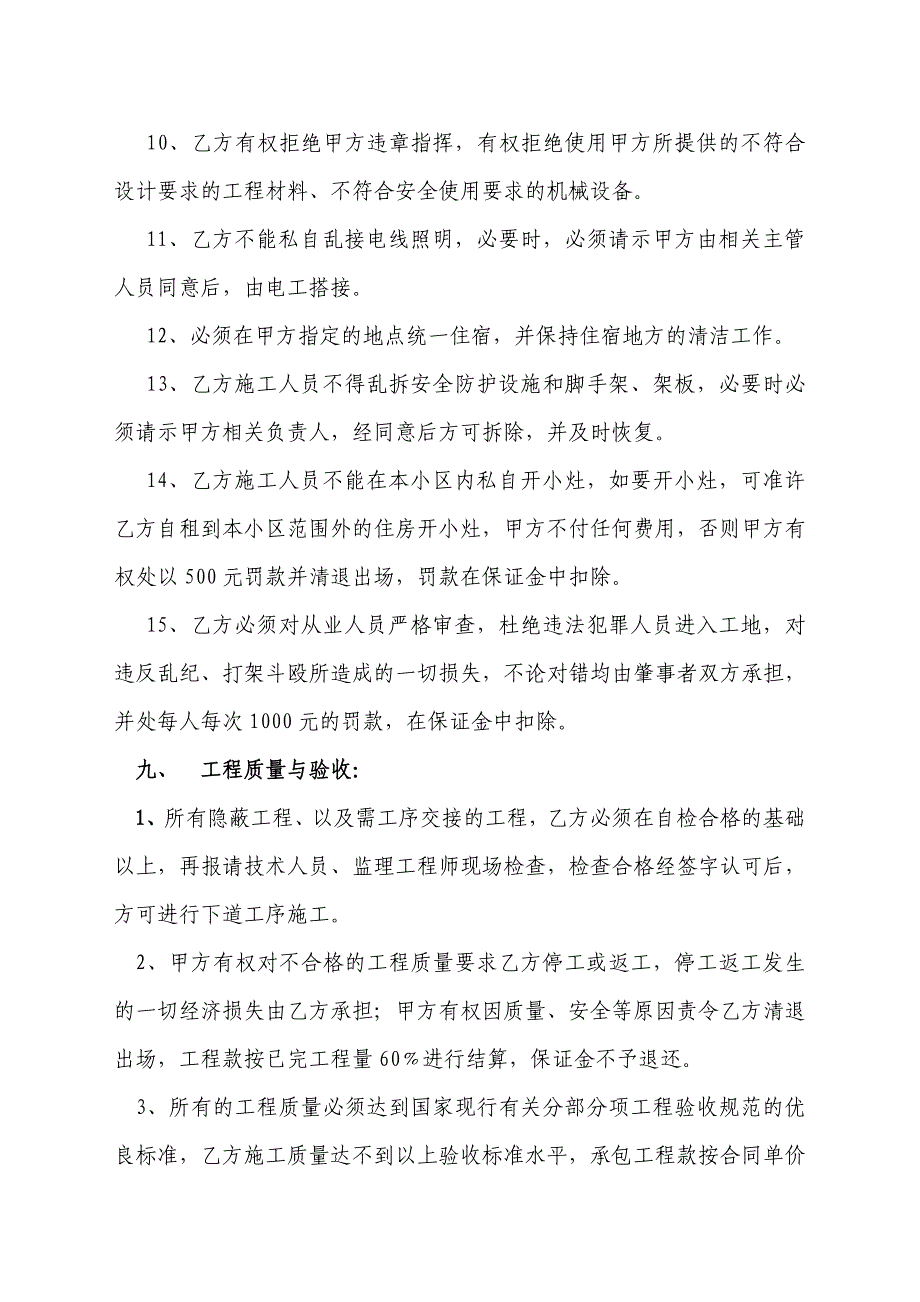 10、乙方有权拒绝甲方违章指挥，有权拒绝使用甲方所提供的不符合
设计要求的工程材料、不符合安全使用要求的机械设备。
11、乙方不能私自乱接电线照明，必要时，必须请示甲方由相关主管
人员同意后，由电工搭接。
12、必须在甲方指定的地点统一住宿，并保持住宿地方的清洁工作。
13、乙方施工人员不得乱拆安全防护设施和脚手架、架板，必要时必
须请示甲方相关负责人，经同意后方可拆除，并及时恢复。
14、乙方施工人员不能在本小区内私自开小灶，如要开小灶，可准许
乙方自租到本小区范围外的住房开小灶，甲方不付任何费用，否则甲方有
权处以 500 元罚款并清退出场，罚款在保证金中扣除。
15、乙方必须对从业人员严格审查，杜绝违法犯罪人员进入工地，对
违反乱纪、打架斗殴所造成的一切损失，不论对错均由肇事者双方承担，
并处每人每次 1000 元的罚款，在保证金中扣除。
九、 工程质量与验收：
1、所有隐蔽工程、以及需工序交接的工程，乙方必须在自检合格的基础
以上，再报请技术人员、监理工程师现场检查，检查合格经签字认可后，
方可进行下道工序施工。
2、甲方有权对不合格的工程质量要求乙方停工或返工，停工返工发生
的一切经济损失由乙方承担；甲方有权因质量、安全等原因责令乙方清退
出场，工程款按已完工程量 60％进行结算，保证金不予退还。
3、所有的工程质量必须达到国家现行有关分部分项工程验收规范的优
良标准，乙方施工质量达不到以上验收标准水平，承包工程款按合同单价